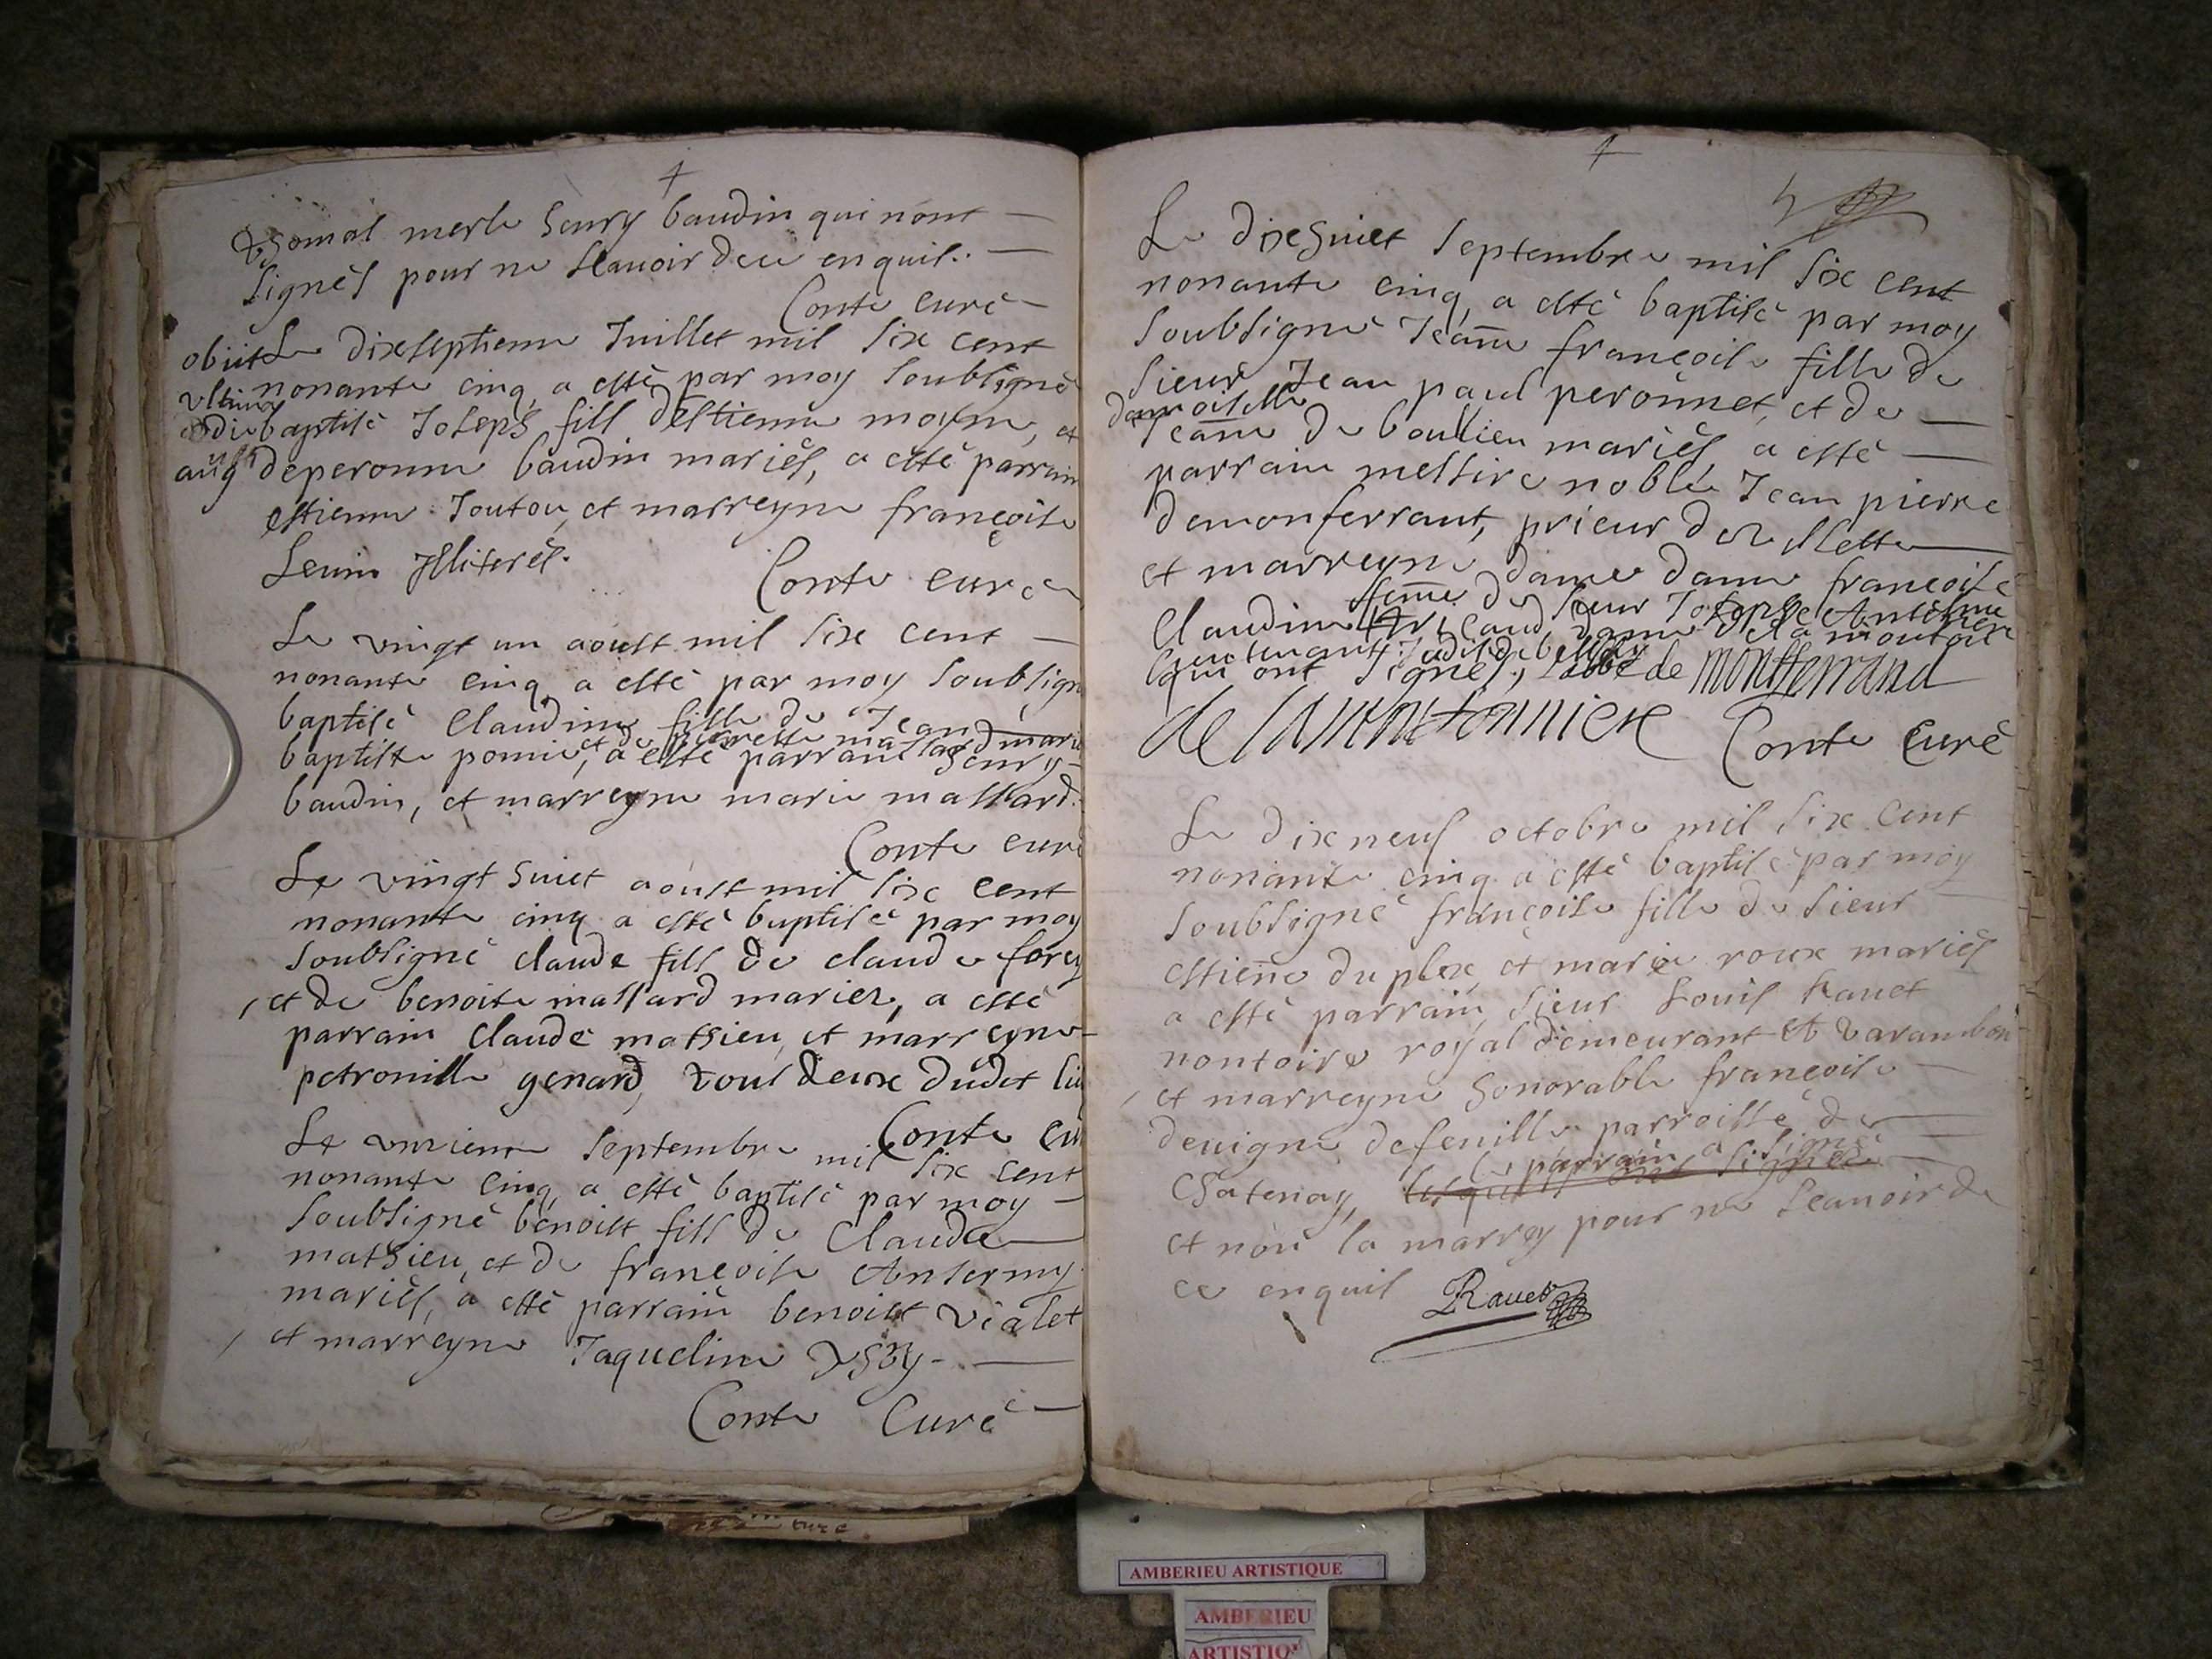 thomas merle henry baudin qui n'ont
signés pour ne scavoir de ce enquis..
Conte curé
obiit Le dixseptieme Juillet mil six cent
ultima nonante cinq, a esté par moy soubsigné
die baptisé Joseph fils d'estienne moyne, et
aug deperonne baudin mariés, a esté parrain
estienne Joutou, et marreyne françoise
Illiterés.
Conte curé
Le vingt un aoust mil six cent
nonante cinq a esté par moy soubsign
baptisé Claudine fille de Jean
baptiste pomie, et de pierrette massard mariés
a esté parrain henry
baudin, et marreyne marie massard.
Conte curé
Le vingt huict aoust mil six cent
nonante cinq a esté baptisé par moy
soubsigné claude fils de claude forey
et de benoite massard mariez, a esté
parrain Claude mathieu, et marreyne
petronille genard, tous deux dudit lieu
Conte cu
Le unzieme septembre mil six cent
nonante cinq, a esté baptisé par moy
soubsigné benoist fils de Claude
mathieu, et de françoise Antermy
mariés, a esté parrain benoist vialet
et marreyne Jaqueline
Conte Curé
Le dixehuict septembre mil six cent
nonante cinq, a esté baptisé par moy
soubsigné Jeanne françoise fille de
sieur Jean paul peronnet, et de
damoiselle Jeanne de boulieu mariés, a esté
parrain messire noble Jean pierre
demonferrant, prieur
et marreyne dame françoise
Claudine femme du sieur Joseph Antelme
qui ont signés, l'abbé de montferrand
de la moutonniere Conte Curé
Le dix neuf octobre mil six cent
nonante cinq a esté baptisé par moy
soubsigné françoise fille de sieur
estienne duplex, et marie roux mariés
a esté parrain sieur Louis Ravet
nontoire royal demeurant a varambon
et marreyne honorable françoise
devigne defeuille parroisse de
Chatenay, lesquels ont signés le parrain a signé
et non la marrey pour ne scavoir de
ce enquis Ravet
AMBERIEU ARTISTIQUE
AMBERIEU
ARTISTIQU